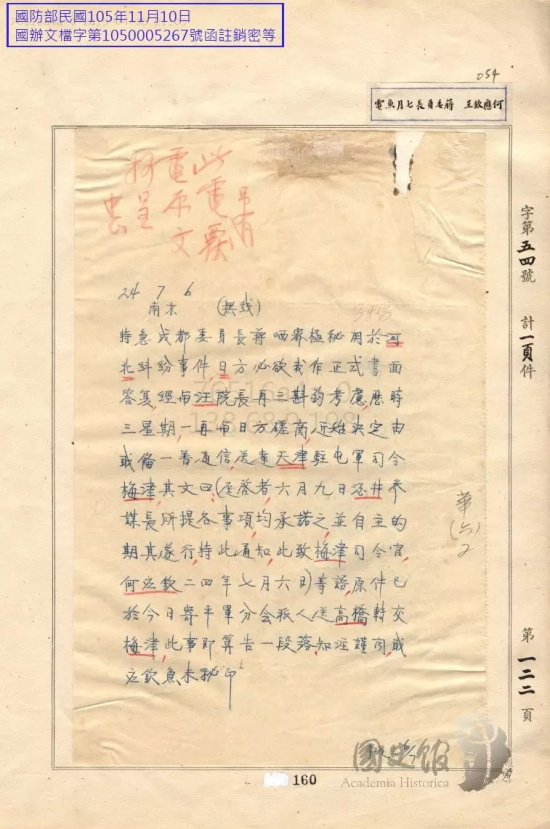 國防部民國105年11月10日
國辦文檔字第1050005267號函註銷密等
054
何應欽呈 蔣委員長七月魚電
此電要
電原文
抄呈
24 7 6
南京 (無綫)
特急成都委員長蔣 密極秘 關於河
北糾紛事件,日方必欲我作正式書面
答复,經與汪院長再三斟酌考慮,歷時
三星期,一再向日方磋商,近始決定由
或備一普通信,送達天津駐屯軍司令
梅津,其文曰,(逕啓者六月九日酒井参
謀長所提各事項,均承諾之,並自主的
期其遂行,特此通知,此致梅津司令官,
何应欽二四年七月六日)等語,原件已
於今日寄平軍分会派人送高橋轉交
梅津,此事即算告一段落,知注謹聞,職
应欽魚未秘印
字第五四號 計一頁件
第一二二頁
160
國史館
Academia Historica